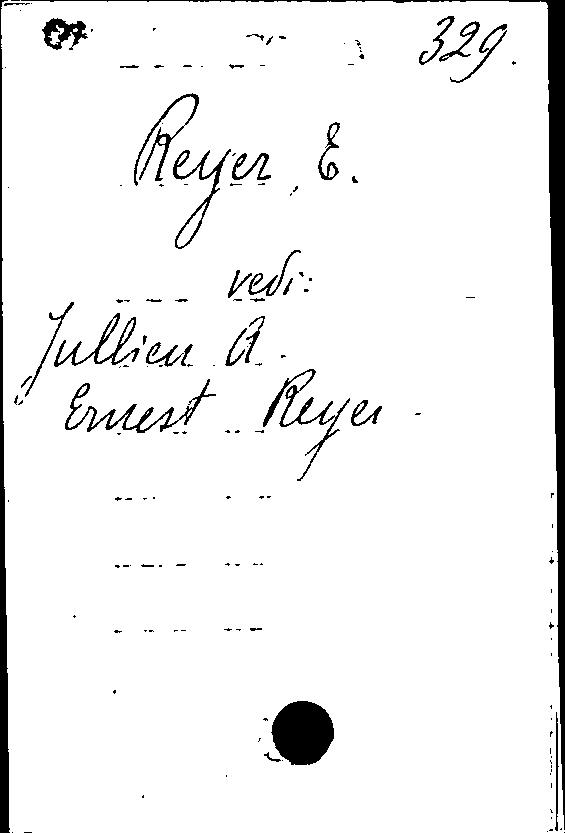 329.
Reyer, E.
vedi:
Jullien A.
Ernest Reyer.